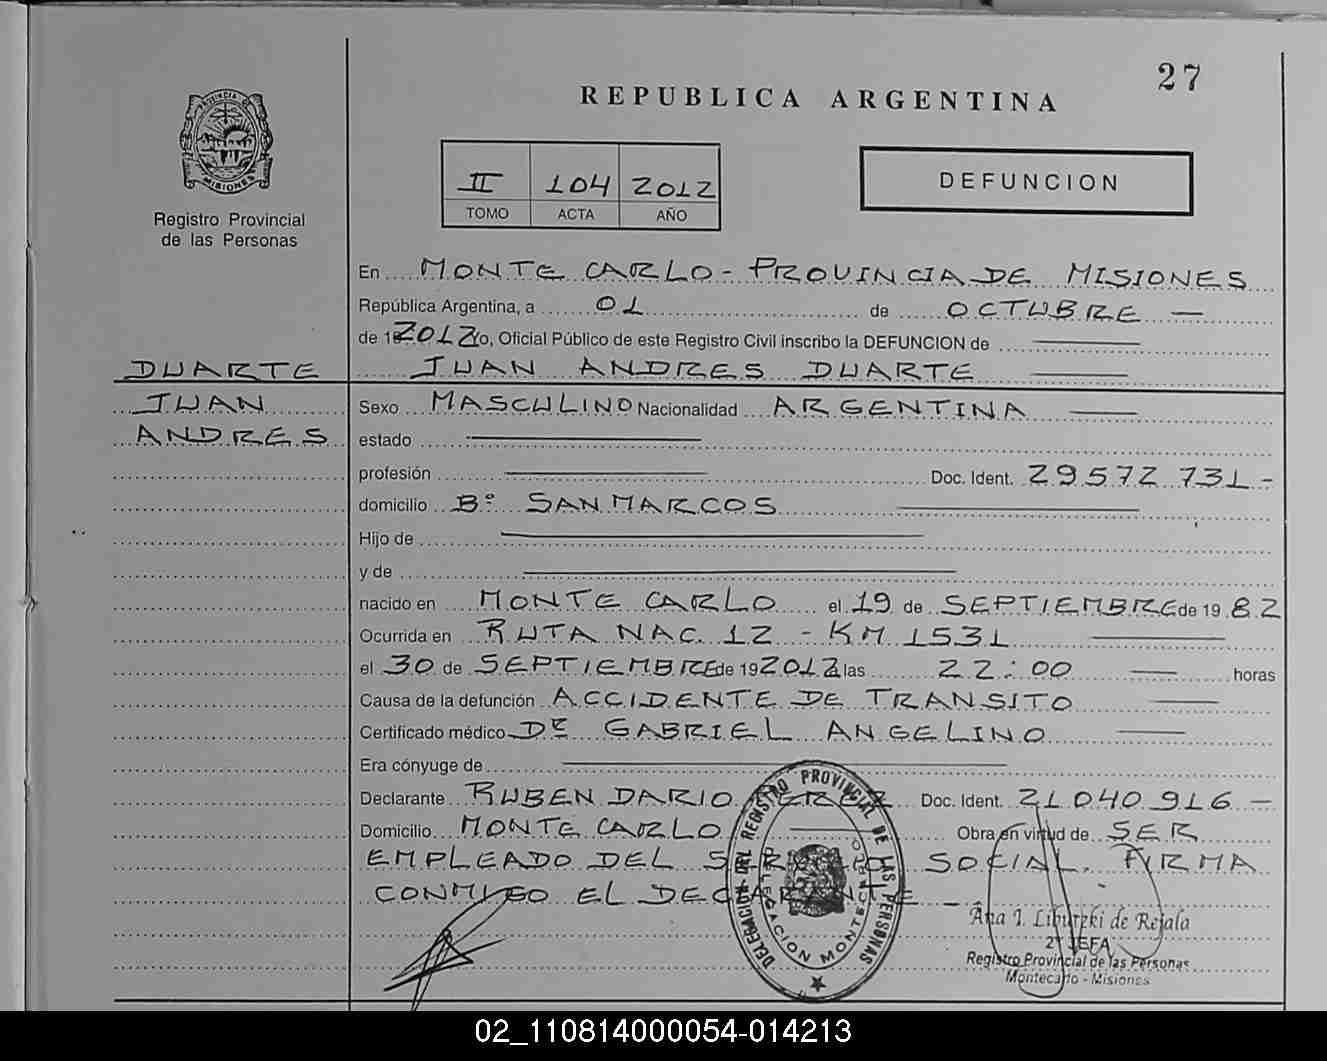 27
REPUBLICA ARGENTINA
PROVINCIA DE
MISIONES
Registro Provincial
de las Personas
II 104 2012
TOMO ACTA AÑO
DEFUNCION
En MONTE CARLO - PROVINCIA DE MISIONES
República Argentina, a 01 de OCTUBRE —
de 2012 Yo, Oficial Público de este Registro Civil inscribo la DEFUNCION de
DUARTE JUAN ANDRES DUARTE
JUAN Sexo MASCULINO Nacionalidad ARGENTINA
ANDRES estado
profesión Doc. Ident. 29572731-
domicilio Bº SAN MARCOS
Hijo de
y de
nacido en MONTE CARLO el 19 de SEPTIEMBRE de 19 82
Ocurrida en RUTA NAC. 12 - KM 1531
el 30 de SEPTIEMBRE de 19 2012 a las 22:00 horas
Causa de la defunción ACCIDENTE DE TRANSITO
Certificado médico Dr GABRIEL ANGELINO
Era cónyuge de
Declarante RUBEN DARIO PEREZ Doc. Ident. 21040916 -
Domicilio MONTE CARLO Obra en virtud de SER
EMPLEADO DEL SOCIAL. FIRMA
CONMIGO EL DECLARANTE -
DELEGACION DEL REGISTRO PROVINCIAL DE LAS PERSONAS
DELEGACION MONTECARLO
Ana I. de Rejala
2º JEFA
Registro Provincial de las Personas
Montecarlo - Misiones
02_110814000054-014213